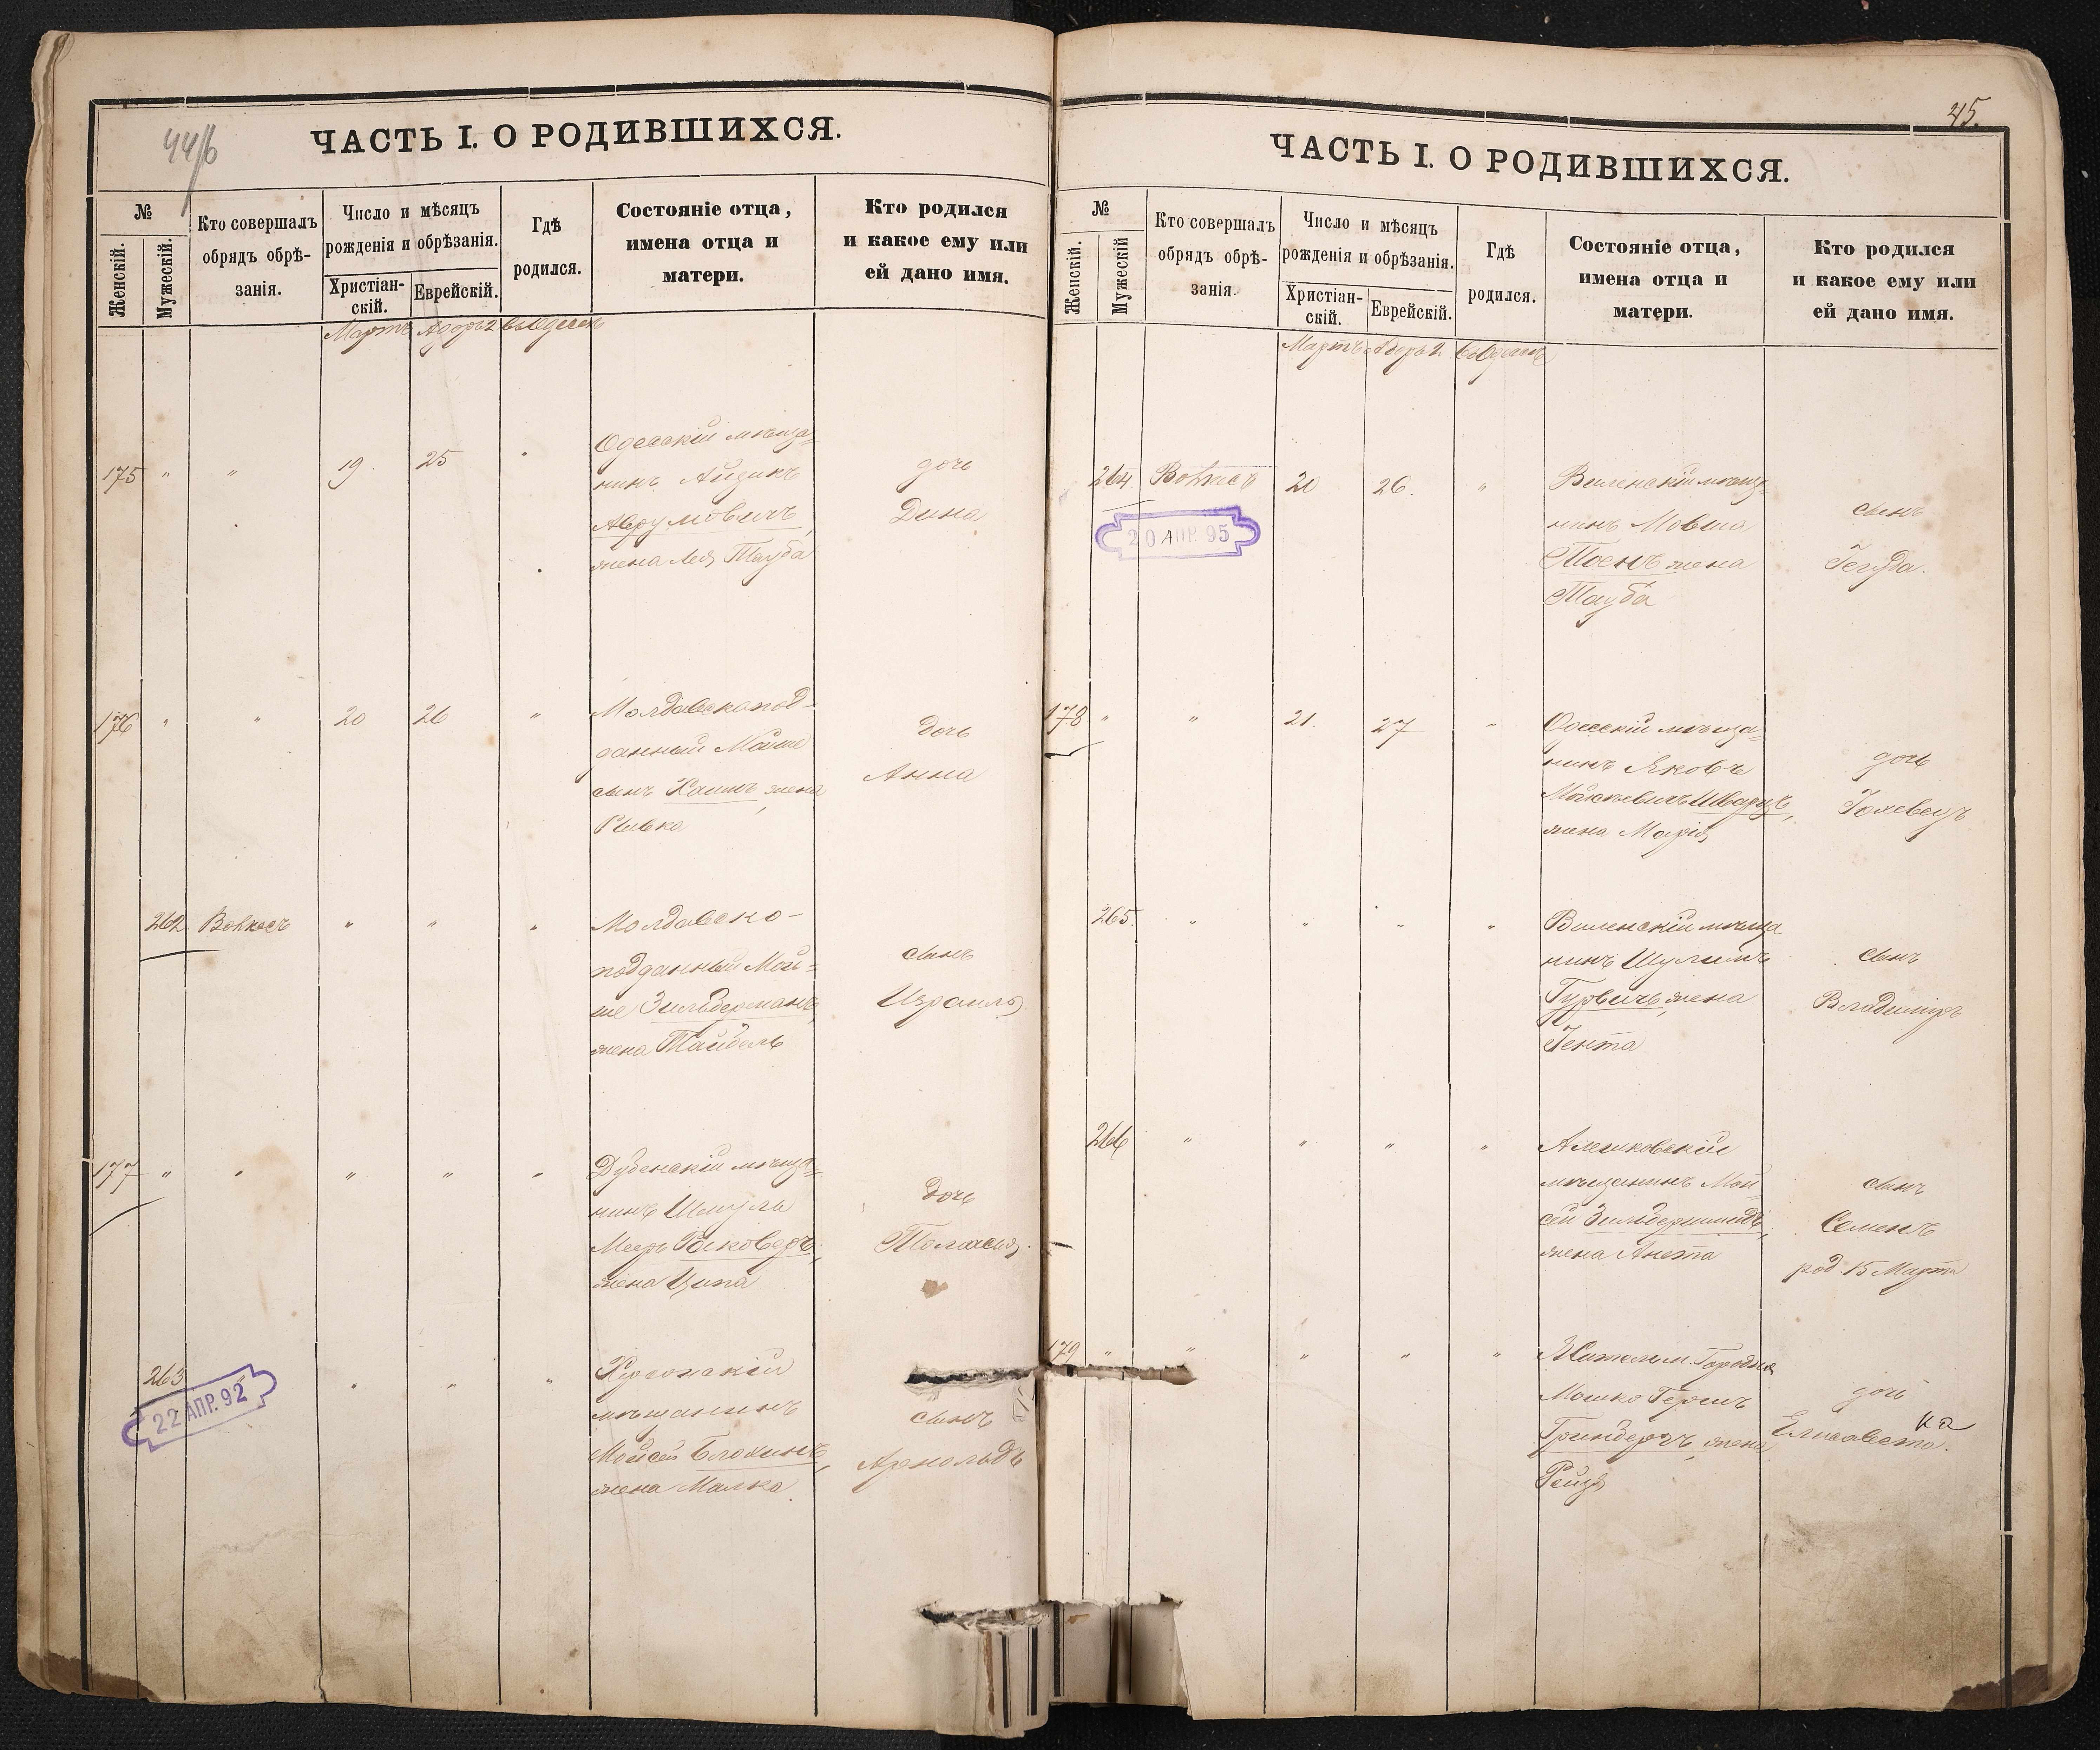 44/6
ЧАСТЬ I. О РОДИВШИХСЯ.
№
Женскій.
Мужескій.
Кто совершалъ
обрядъ обрѣ-
занія.
Число и мѣсяцъ
рожденія и обрѣзанія.
Христіан-
скій.
Еврейскій.
Гдѣ
родился.
Состояніе отца,
имена отца и
матери.
Кто родился
и какое ему или
ей дано имя.
Мартъ Адаръ 2 въ Одессѣ
175 " " 19 25 "
Одесскій мѣща-
нинъ Айзикъ
Аврумовичъ,
жена Лея Тауба
дочь
Дина
176 " " 20 26 "
Молдавскопод-
данный
сынъ Хаимъ, жена
Рывка
дочь
Анна
262 " " "
Молдавско-
подданный Мой-
ше Зильберманъ,
жена Тайбель
сынъ
Израиль
177 " " " " "
Дубенскій мѣща-
нинъ Шмуль
Мееръ
жена Ципа
дочь
263 " " "
22 АПР. 92
Херсонскій
мѣщанинъ
Мойсей Блохинъ,
жена Малка
сынъ
Арнольдъ
45.
ЧАСТЬ I. О РОДИВШИХСЯ.
№
Женскій.
Мужескій
Кто совершалъ
обрядъ обрѣ-
занія.
Число и мѣсяцъ
рожденія и обрѣзанія.
Христіан-
скій.
Еврейскій.
Гдѣ
родился.
Состояніе отца,
имена отца и
матери.
Кто родился
и какое ему или
ей дано имя.
Мартъ Адаръ 2 въ Одессѣ
264. 20 26. "
20 АПР. 95
Виленскій мѣща-
нинъ Мовша
жена
Тауба
сынъ
178 " " 21. 27 "
Одесскій мѣща-
нинъ Яковъ
Шварцъ,
жена Марія
дочь
265. " " " "
Виленскій мѣща
нинъ Шулимъ
Гурвичъ, жена
Гента
сынъ
Владиміръ
266 " " " "
Алешковскій
мѣщанинъ Мой-
сей Зильбершмидъ,
жена Анета
сынъ
Семенъ
род. 15 Марта
179 " " " " "
Мошко Гершъ
жена
Рейзя
дочь
Елисавета.
ка